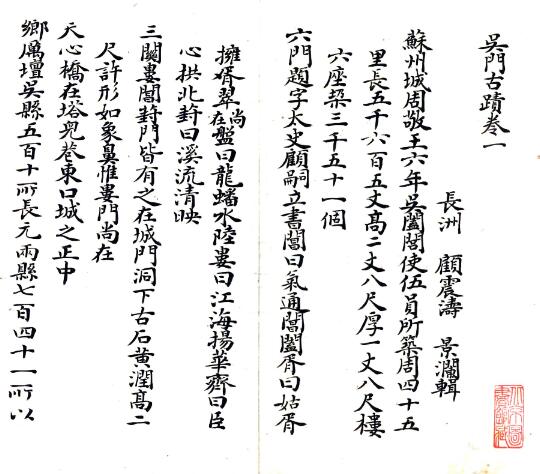 吳門古蹟卷一
長洲 顧震濤 景瀾輯
蘇州城周敬王六年吳闔閭使伍員所築周四十五
里長五千六百五丈高二丈八尺厚一丈八尺樓
六座垜三千五十一個
六門題字太史顧嗣立書閶曰氣通閶闔胥曰姑胥
擁翠尚在盤曰龍蟠水陸婁曰江海揚華齊曰臣
心拱北葑曰溪流清映
三關婁閶葑門皆有之在城門洞下古石黃潤高二
尺許形如象鼻惟婁門尚在
天心橋在塔兒巷東口城之正中
鄉厲壇吳縣五百十所長元兩縣七百四十一所以